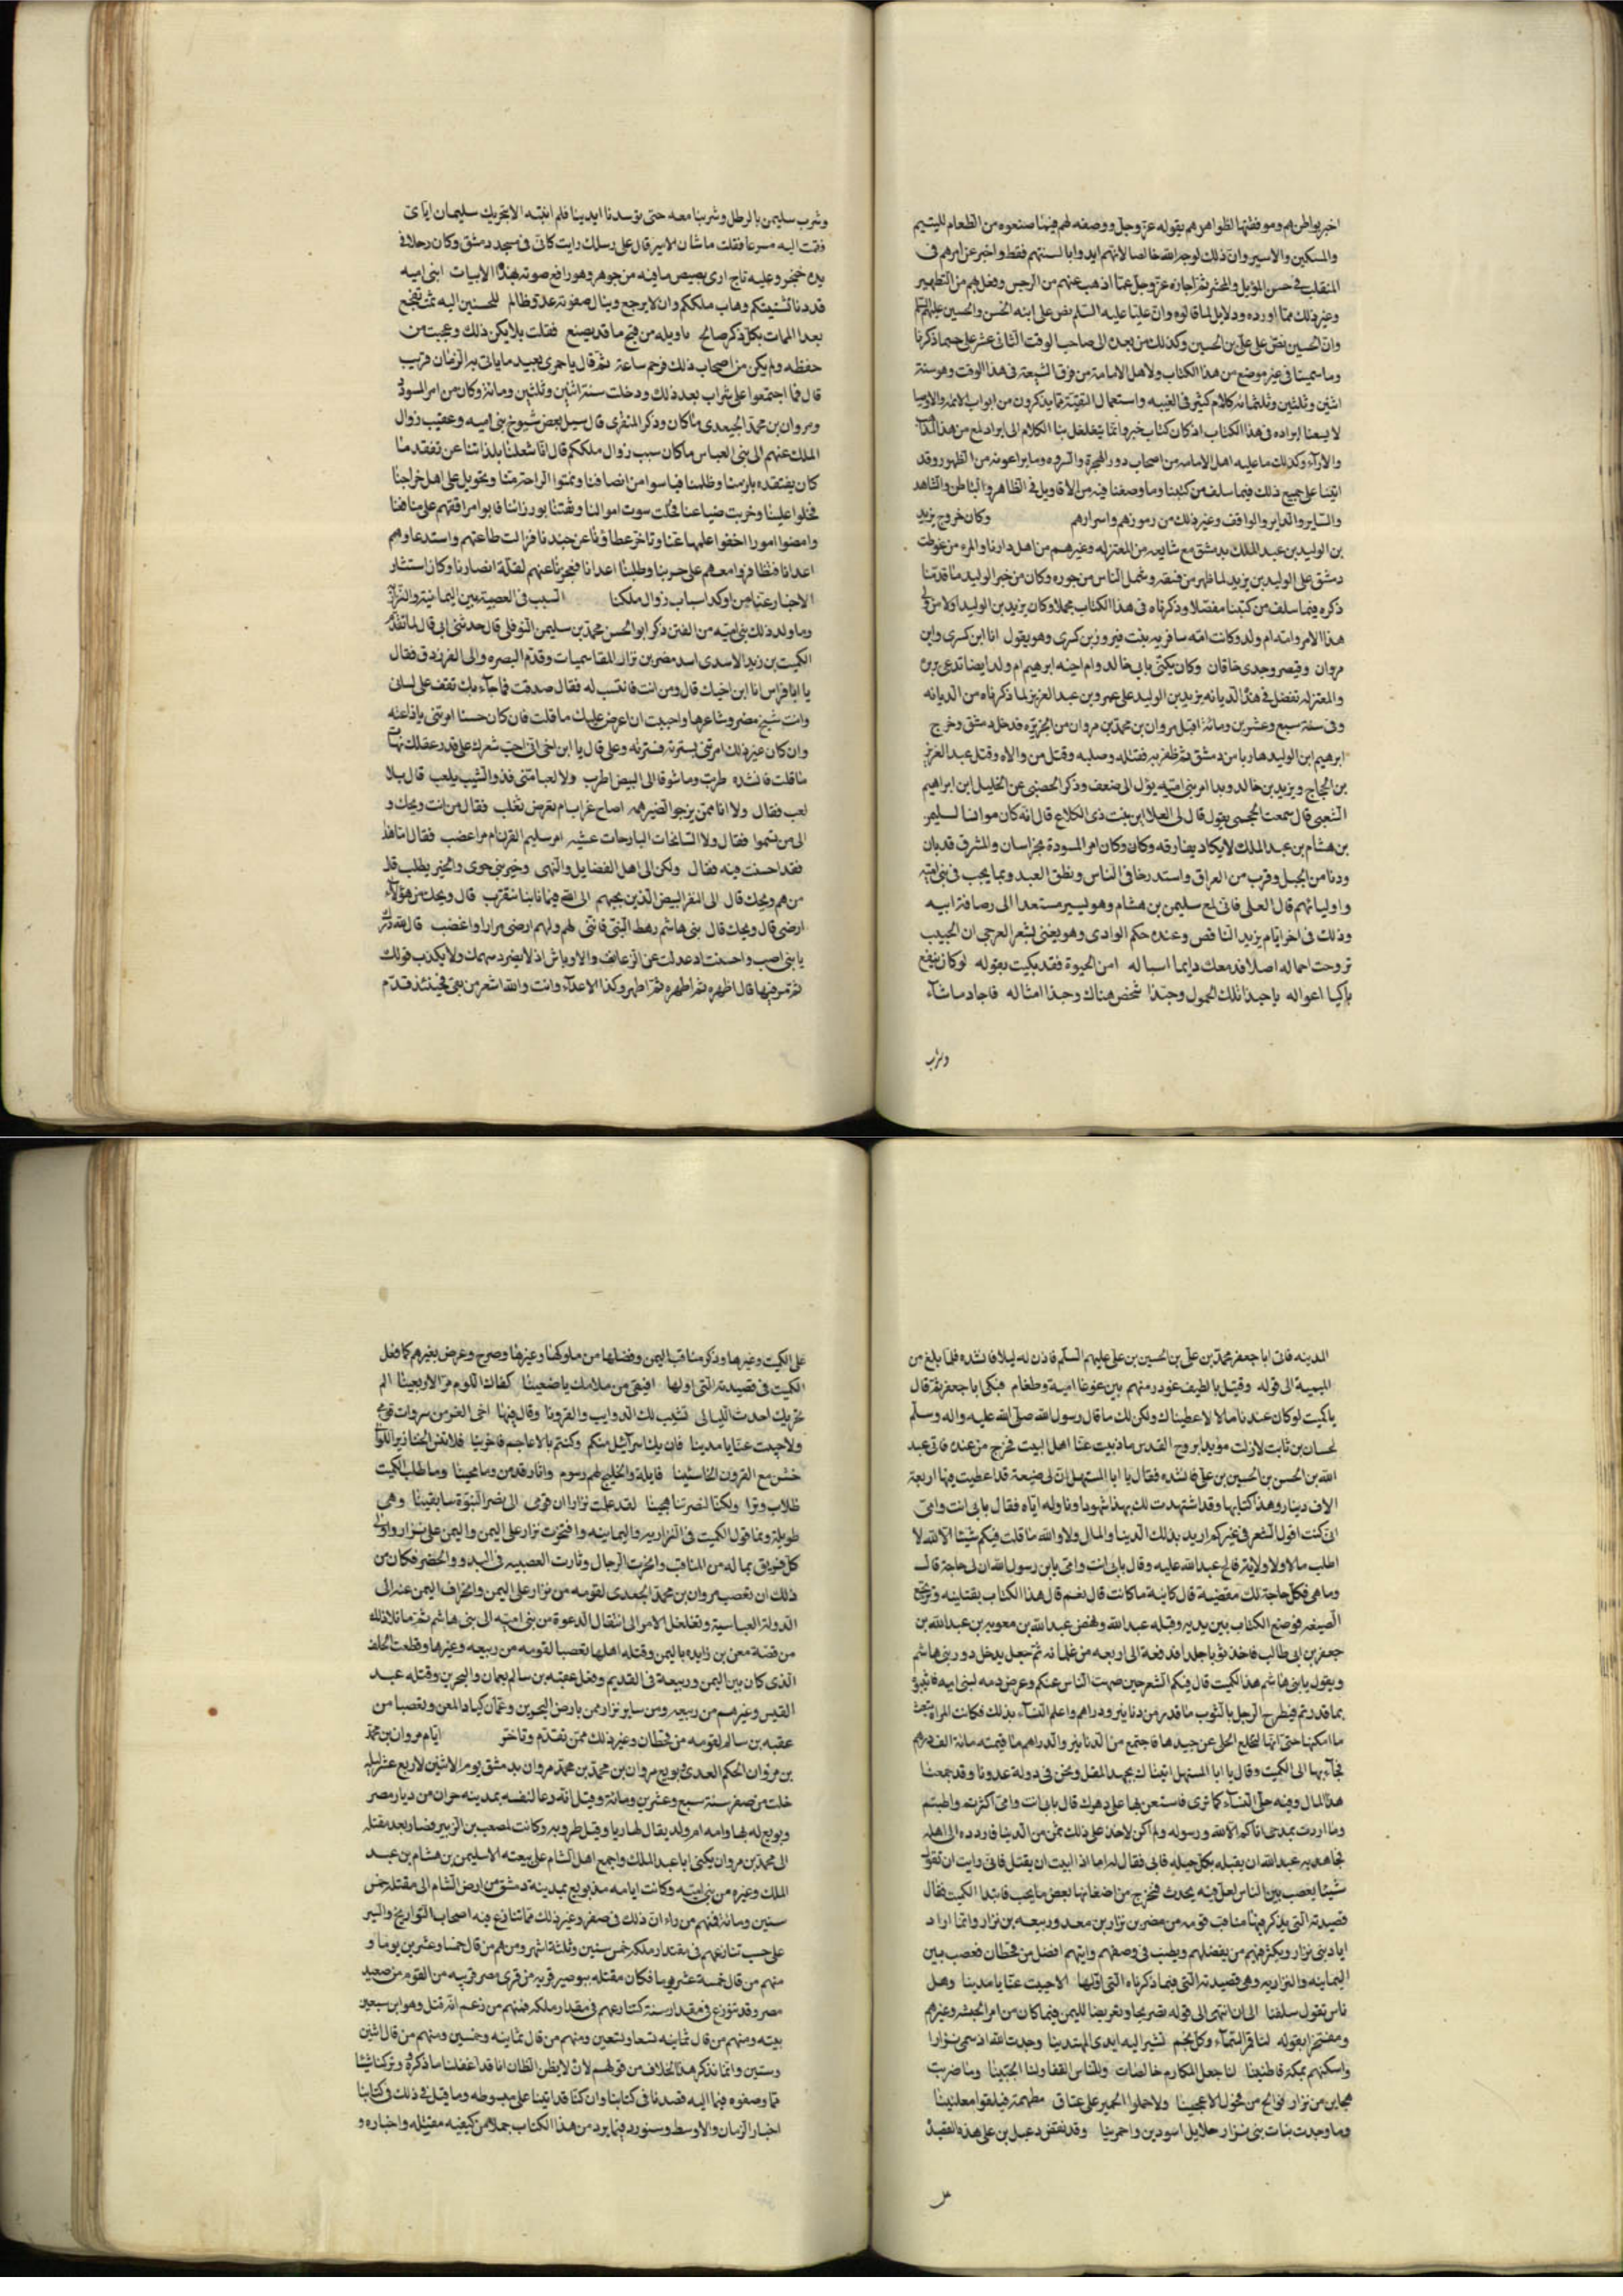 اخبر بواطنهم وموافقتها لظواهرهم بقوله عز وجل ووصفه لهم فيما صنعوه من الطعام لليتيم
والمسكين والاسير وان ذلك لوجه الله خالصا لا انهم ابدوا بالسنتهم فقط واخبر عن امرهم في
المنقلب في حسن الموئل والمحشر ثم اخباره عز وجل عما اذهب عنهم من الرجس وفعل بهم من التطهير
وغير ذلك مما اورده ودلايل لما قالوه وان عليا عليه السلم نص على ابنه الحسن والحسين عليهم السلم
وان الحسين نص على علي بن الحسين وكذلك من بعده الى صاحب الوقت الثاني عشر على حسب ما ذكرنا
وما سمينا في غير موضع من هذا الكتاب ولاهل الامامة من فرق الشيعة في هذا الوقت وهو سنة
اثنين وثلثين وثلثمائه كلام كثير في الغيبه واستعمال التقية وما يذكرون من ابواب الائمه والاوصيا
لا يسعنا ايراده في هذا الكتاب اذ كان كتاب خبر وانما يتغلغل بنا الكلام الى ايراد لمع من هذا المذاهب
والاراء وكذلك ما عليه اهل الامامه من اصحاب دور الهجرة والسروه وما يراعونه من الظهور وقد
اتينا على جميع ذلك فيما سلف من كتبنا وما وصفنا فيه من الاقاويل في الظاهر والباطن والشاهد
والساير والداير والواقف وغير ذلك من رموزهم واسرارهم وكان خروج يزيد
بن الوليد بن عبد الملك بدمشق مع شايعه من المعتزله وغيرهم من اهل داريا والمزه من غوطت
دمشق على الوليد بن يزيد لما ظهر من فسقه وشمل الناس من جوره وكان من خبر الوليد ما قدمنا
ذكره فيما سلف من كتبنا مفصلا وذكرناه في هذا الكتاب مجملا وكان يزيد بن الوليد اولا من ولى
هذا الامر وامه ام ولد وكانت امه سافريه بنت فيروز بن كسرى وهو يقول انا ابن كسرى وابن
مروان وقيصر وجدى خاقان وكان يكنى بابى خالد وام اخيه ابرهيم ام ولد ايضا تدعى بربره
والمعتزله تفضل في هذا الديانه يزيد بن الوليد على عمر بن عبد العزيز لما ذكرناه من الديانه
وفي سنة سبع وعشرين ومائة اقبل مروان بن محمد بن مروان من الجزيره فدخل دمشق وخرج
ابرهيم ابن الوليد هاربا من دمشق ثم ظفر به فقتله وصلبه وقتل من والاه وقتل عبد العزيز
بن الحجاج ويزيد بن خالد وبدا امر بنى اميه يؤل الى ضعف وذكر الحصبى عن الخليل ابن ابراهيم
الشعبى قال سمعت الجمحى يقول قال لى العلا ابن بنت ذى الكلاع قال انه كان موانسا لسليمن
بن هشام بن عبد الملك لا يكاد يفارقه وكان وكان امر المسودة بخراسان والمشرق قد بان
ودنا من الجبل وقرب من العراق واستد رخا في الناس ونطق العبد وبما يجب في بنى اميه
واوليائهم قال العلى فانى لمع سليمن بن هشام وهو ليسير مستعدا الى رصافة ابيه
وذلك في اخر ايام يزيد الناقص وعنده حكم الوادى وهو يغنى بشعر العرجى ان الحبيب
تروحت احماله اصلا فدمعك دايما اسباله امن الحيوة فقد بكيت بعوله لو كان ينفع
باكيا اعواله يا حبذا تلك الحمول وحبذا شخص هناك وحبذا امثاله فاجاد ما شاء
وشرب
وشرب سليمن بالرطل وشربنا معه حتى توسدنا ايدينا فلم انتبه الا بتحريك سليمان اياى
فقمت اليه مسرعا فقلت ما شان الامير قال على رسلك رايت كانى في مسجد دمشق وكان رجلا في
يده خنجر وعليه تاج ارى بصيص ما فيه من جوهر وهو رافع صوته بهذا الابيات ابنى اميه
قد دنا تشتيتكم وذهاب ملككم وان لا يرجع وينال صفوته عدو ظالم للمحسنين اليه ثمت يفجع
بعد الممات بكل ذكر صالح يا ويله من قبح ما قد يصنع فقلت بلا يكن ذلك وعجبت من
حفظه ولم يكن من اصحاب ذلك فوجم ساعة ثم قال يا حميرى بعيد ما ياتى به الزمان قريب
قال فما اجتمعوا على شراب بعد ذلك ودخلت سنة اثنين وثلثين ومائة وكان من امر المسودة
ومروان بن محمد الجعدى ما كان وذكر المنقرى قال سيل بعض شيوخ بنى اميه وعقيب زوال
الملك عنهم الى بنى العباس ما كان سبب زوال ملككم قال انا شغلنا بلذاتنا عن تفقد ما
كان يفتقده يلزمنا وظلمنا فياسوا من انصافنا وتمنوا الراحه منا وتحومل على اهل خراجنا
فخلوا علينا وخربت ضياعنا فخلت بيوت اموالنا ووثقنا بوزرائنا فابوا مرافقهم على منافعنا
وامضوا امورا اخفوا علمها عنا وتاخر عطا فنا عن جندنا فزالت طاعتهم واستدعاوهم
اعدانا فظافروا معهم على حربنا وطلبنا اعدانا فعجزنا عنهم لقلة انصارنا وكان استتار
الاخبار عنا من اوكد اسباب زوال ملكنا السبب في العصبيه بين اليمانيه والنزاريه
وما ولد ذلك بنى اميه من الفتن ذكر ابو الحسن محمد بن سليمن النوفلى قال حدثنى ابى قال لما تقدم
الكميت بن زيد الاسدى اسد مضر بن نزار المقاسميات وقدم البصره واتى الفرزدق فقال
يا ابا فراس انا ابن اخيك قال ومن انت فانتسب له فقال صدقت فما جاء بك تقف على لسان
وانت شيخ مضر وشاعرها واحببت ان اعرض عليك ما قلت فان كان حسنا امرتنى باذاعته
وان كان غير ذلك امرتنى بستره فسترته وعلى قال يا ابن اخى انى احب شعرك على قدر عقلك فهات
ما قلت فانشده طربت وما شوقا الى البيض اطرب ولا لعبا منى فذو الشيب يلعب قال بلا
لعب فقال ولا انا ممن يزجر الطير همه اصاح غراب ام تعرض ثعلب فقال من انت ويحك و
الى من تسموا فقال ولا السانحات البارحات عشيه امر سليم القرن ام مر اعضب فقال اما هذا
فقد احسنت فيه فقال ولكن الى اهل الفضايل والنهى وخير بنى حوى والخير يطلب قال
من هم ويحك قال الى النفر البيض الذين بحبهم الى الله فيما نابنا نتقرب قال ويحك من هؤلاء
ارضى قال ويحك قال بنى هاشم رهط النبى فاننى لهم ولهم ارضى مرارا واغضب قال لقد درك
يا بنى اصب واحسنت ادعدلت عن الزعانف والاوباش اذلا يضرد سهمك ولا يكذب قولك
ثم مر فيها قال اظهره ثم اظهره ثم اظهر وكذا الاعداء وانت والله اشعر من بقى فحينئذ قدم
المدينه فاتى ابا جعفر محمد بن على بن الحسين بن على عليهم السلم فاذن له ليلا فانشده فلما بلغ من
الميمية الى قوله وقتيل بالطف غودر منهم بين غوغا امية وطغام فبكى ابا جعفر ثم قال
يا كميت لو كان عندنا مالا لاعطيناك ولكن لك ما قال رسول الله صلى الله عليه واله وسلم
لحسان بن ثابت لا زلت مؤيدا بروح القدس ما ذببت عنا اهل البيت فخرج من عنده فاتى عبد
الله بن الحسن بن الحسين بن على فانشده فقال يا ابا المستهل ان لى ضيعة قد اعطيت فيها اربعة
الاف دينار وهذا كتابها وقد اشهدت لك بهذا شهودا وناوله اياه فقال بابى انت وامى
انى كنت اقول الشعر في غيركم اريد بذلك الدنيا والمال ولا والله ما قلت فيكم شيئا الا لله لا
اطلب مالا ولا ولاية فالح عبد الله عليه وقال بابى انت وامى يا بن رسول الله ان لى حاجة قال
وما هى فكل حاجة لك مقضية قال كاينة ما كانت قال نعم قال هذا الكتاب يقتلينه وترتجع
الضيعه فوضع الكتاب بين يديه وقبله عبد الله ونهض عبد الله بن معويه بن عبد الله بن
جعفر بن ابى طالب فاخذ ثوبا جلدا فدفعه الى اربعه من غلمانه ثم جعل يدخل دور بنى هاشم
ويقول يا بنى هاشم هذا الكميت قال فيكم الشعر حين صمت الناس عنكم وعرض دمه لبنى اميه فاثيبوه
بما قدرتم فيطرح الرجل بالثوب ما قدر من دنانير ودراهم واعلم النساء بذلك فكانت المراة تبعث
ما امكنها حتى انها لتخلع الحلى عن جيدها فاجتمع من الدنانير والدراهم ما قيمته مائة الف درهم
فجاء بها الى الكميت وقال يا ابا المستهل اتيناك بجهد المقل ونحن في دولة عدونا وقد جمعنا
هذا المال وفيه حلى النساء كما ترى فاستعن بها على دهرك قال بابى انت وامى اكثرتم واطبتم
وما اردت بمدحى اياكم الا الله ورسوله ولم اكن لاخذ على ذلك ثمنا من الدنيا فاردده الى اهله
فجاهد به عبد الله ان يقبله بكل حيلة فابى فقال له اما اذا ابيت ان يقتل فانى رايت ان تقول
شيئا يعصب بين الناس لعل فيه يحدث فتخرج من اضغانها بعض ما يحب فابتدا الكميت فقال
قصيدته التى يذكر فيها مناقب قومه من مضر بن نزار بن معد وربيعه بن نزار وانما اراد
اياد بنى نزار ويكثر فيهم من يفضلهم ويطنب في وصفهم وانهم افضل من قحطان فعصب بين
اليمانيه والنزاريه وهى قصيدته التى فيما ذكرناه التى اولها الا حييت عنا يا مدينا وهل
ناس تقول سلفنا الى ان انتهى الى قوله تصريحا وتعريضا لليمن فيما كان من امر الحبشه وغيرهم
ومفتخرا بقوله لنا قمر السماء وكل نجم تشير اليه ايدى المهتدينا وجدت الله اذ سمى نزارا
واسكنهم بمكة قاطنينا لنا جعل المكارم خالصات وللناس القفا ولنا الجبينا وما ضربت
هجاين من نزار فوالح من فحول الاعجمينا ولا حملوا الحمير على عتاق مطهمة فيلفوا معلنينا
وما وجدت بنات بنى نزار حلايل اسودين واحمرينا وقد نقض دعبل بن على هذه القصيده
على
على الكميت وغيرها وذكر مناقب اليمن وفضلها من ملوكها وغيرها وصرح وعرض بغيرهم كما فعل
الكميت في قصيدته التى اولها افيقى من ملامك يا ضعينا كفاك اللوم مر الاربعينا الم
تحزنك احدث الليالى تشيب لك الذوايب والقرونا وقال فيها احى الغر من سروات قومى
ولا حييت عنا يا مدينا فان يك اسرائيل منكم وكنتم بالاعاجم فاخرينا فلا تنس الخنازير اللواتى
خسئن مع القرون الخاسئينا فايلة والخليج لهم رسوم واثار قدمن وما محينا وما طلب الكميت
طلاب وترا ولكنا لنصرتنا هجينا لقد علمت نزارا ان قومى الى نصر النبوة سابقينا وهى
طويلة ونما قول الكميت في النزاريه واليمانيه وافتخرت نزار على اليمن واليمن على نزار وادلى
كل فريق بما له من المناقب والحزبت الرجال وثارت العصبيه في البدو والحضر فكان من
ذلك ان تعصب مروان بن محمد الجعدى لقومه من نزار على اليمن وانحراف اليمن عنه الى
الدولة العباسية وتغلغل الامر الى انتقال الدعوة من بنى اميه الى بنى هاشم ثم ما تلا ذلك
من قصة معن بن زايده باليمن وقتله اهلها تعصبا لقومه من ربيعه وغيرها وقطعت الحلف
الذى كان بين اليمن وربيعة في القديم وفعل عقبه بن سالم بعمان والبحرين وقتله عبد
القيس وغيرهم من ربيعه ومن ساير نزار ممن بارض البحرين وعمان كيادا لمعن وتعصبا من
عقبه بن سالم لقومه من قحطان وغير ذلك ممن تقدم وتاخر ايام مروان بن محمد
بن مروان الحكم العدى بويع مروان بن محمد بن محمد مروان بدمشق يوم الاثنين لاربع عشر ليله
خلت من صفر سنة سبع وعشرين ومائة وقيل انه دعا لنفسه بمدينه حران من ديار مصر
وبويع له بها وامه ام ولد يقال لها ريا وقيل طرونه وكانت لمصعب بن الزبير فصار بعد مقتله
الى محمد بن مروان يكنى ابا عبد الملك واجمع اهل الشام على بيعته الا سليمن بن هشام بن عبد
الملك وغيره من بنى اميه وكانت ايامه منذ بويع بمدينة دمشق من ارض الشام الى مقتله خمس
سنين ومائة فمنهم من راى ان ذلك في صفر وغير ذلك مما تنازع فيه اصحاب التواريخ والسير
على حسب تنازعهم في مقدار ملكه خمس سنين وثلثة اشهر ومنهم من قال خمسا وعشرين يوما و
منهم من قال خمسة عشر يوما فكان مقتله ببوصير قريه من قرى مصر قريبه من الفيوم من صعيد
مصر وقد تنوزع في مقدار سنه كتنازعهم في مقدار ملكه فمنهم من زعم انه قتل وهو ابن سبعين
سنه ومنهم من قال ثمانيه تسعا وتسعين ومنهم من قال ثمانيه وخمسين ومنهم من قال اثنين
وستين وانما نذكر هذا الخلاف من قولهم لان لا يظن الظان انا قد اغفلنا ما ذكروه وتركنا شيئا
مما وصفوه فيما اليه قصدنا في كتابنا وان كنا قد اتينا على مبسوطه وما قيل في ذلك في كتابنا
اخبار الزمان والاوسط وسنورد فيما يرد من هذا الكتاب جملا من كيفيه مقتله واخباره و